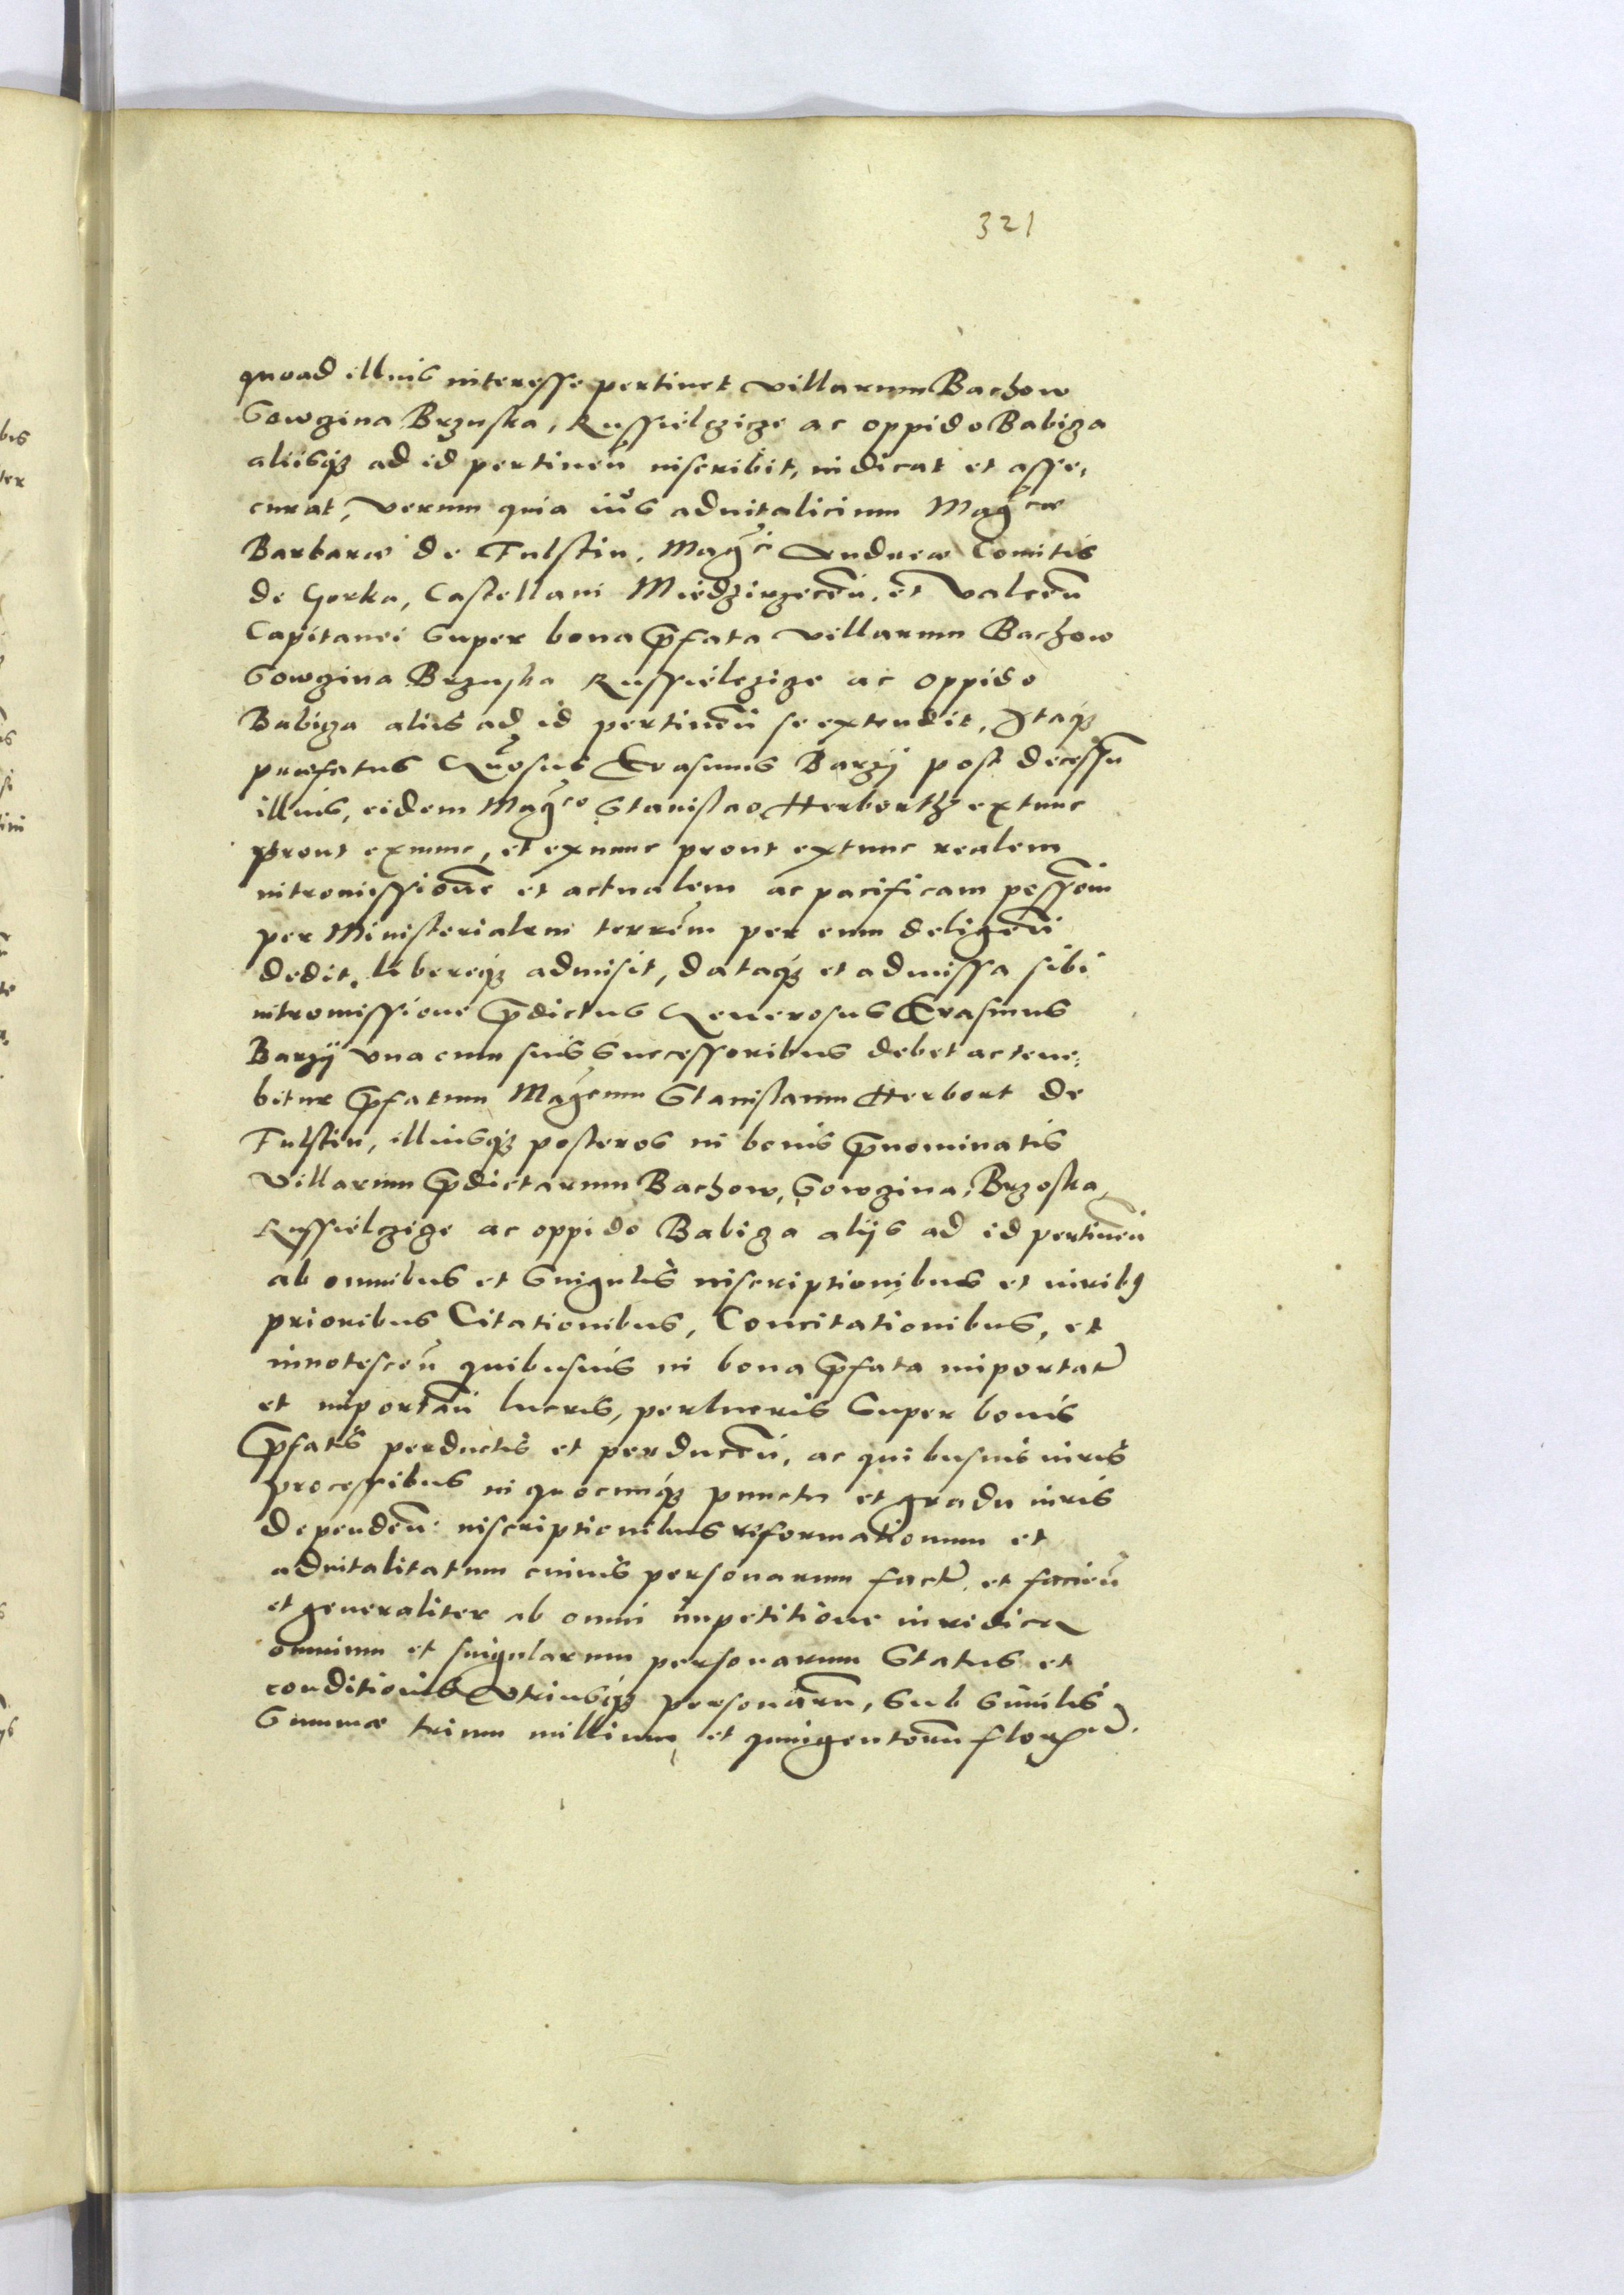 321
quoad illius interesse pertinet villarum Bachow
Sowgina Brzuska, Russielczicze ac oppido Babicza
aliisq3 ad id pertinen̄ inscribit, indicat et asse,
curat, verum quia ius aduitalicium Mag͞cæ
Barbaræ de Fulstin, Mag͞ci Andreæ Comitis
de Gorka, Castellani Miedzirzecen̄. et Valcen̄
Capitanei super bona p̄fata villarum Bachow
Sowgina Brzuska Russielczicze ac oppido
Babicza aliis ad id pertinen̄ se extendit, Itaq3
præfatus G͞nosus Erasmus Barzÿ post decessū
illius, eidem Mag͞co Stanislao Herborth extunc
prout exnunc, et exnunc prout extunc realem
intromissionē et actualem ac pacificam possēm
per Ministerialem terrēm per eum deligen̄
dedit, libereq3 admisit, dataq3 et admissa sibi
intromissione p̄dictus Generosus Erasmus
Barzÿ vna cum suis successoribus debet ac tene,
bitur p̄fatum Mag͞cum Stanislaum Herbort de
Fulstin, illiusq3 posteros in bonis p̄nominatis
villarum p̄dictarum Bachow, Sowgina, Brzoska,
Russielczicze ac oppido Babicza alÿs ad id pertinen̄
ab omnibus et singulis inscriptionibus et iurib9
prioribus Citationibus, Concitationibus, et
innotescen̄ quibusuis in bona p̄fata importat̄
et importan̄ lucris, perlucris super bonis
p̄fatis perductis et perducen̄, ac quibusuis iuris
processibus in quocunq3 punctu et gradu iuris
dependen̄: inscriptionibus reformationum et
aduitalitatum cuiuis personarum fact̄. et facien̄
et generaliter ab omni impetitione iuridica
omnium et singularum personarum status et
conditionis vtriusq3 personarū, sub similis
summæ trium millium et quingentorū flor